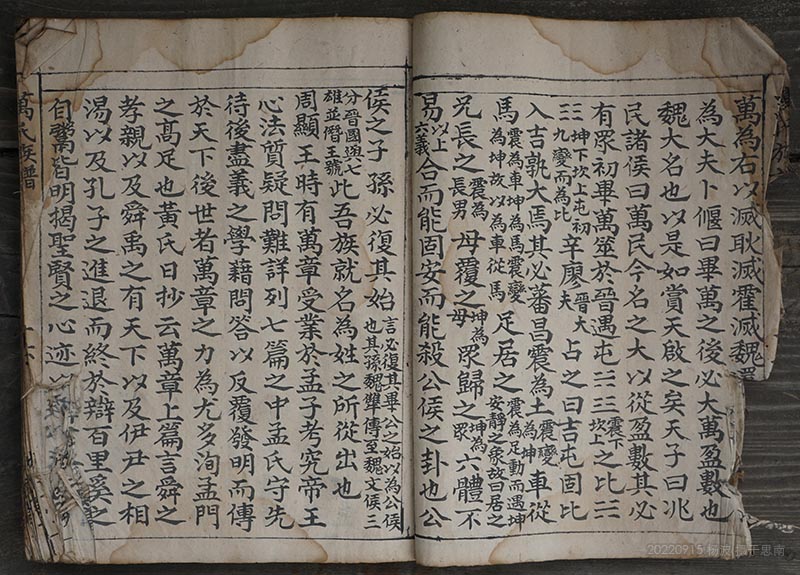 萬為右以滅耿滅霍滅魏
為大夫卜偃曰畢萬之後必大萬盈數也
魏大名也以是如賞天啟之矣天子曰兆
民諸侯曰萬民今名之大以從盈數其必
有眾初畢萬筮於晉遇屯震下坎上之比
坤下坎上屯初九變而為比辛廖晉大夫占之曰吉屯固比
入吉孰大焉其必蕃昌震為土震變為坤車從
馬震為車坤為馬震變為坤故以為車從馬足居之震為足動而遇坤安靜之象故曰居之
兄長之震為長男母覆之坤為母眾歸之坤為眾六體不
易以上六義合而能固安而能殺公侯之卦也公
侯之子孫必復其始言必復其畢公之始以為公侯也其孫魏犨傳至魏文侯三
分晉國與七雄並僭王號此吾族就名為姓之所從出也
周顯王時有萬章受業於孟子考究帝王
心法質疑問難詳列七篇之中孟氏守先
待後盡義之學藉問答以反覆發明而傳
於天下後世者萬章之力為尤多洵孟門
之高足也黃氏日抄云萬章上篇言舜之
孝親以及舜禹之有天下以及伊尹之相
湯以及孔子之進退而終於辯百里奚之
自鬻皆明揭聖賢之心迹
萬氏族譜
20220915 楊波 攝于思南